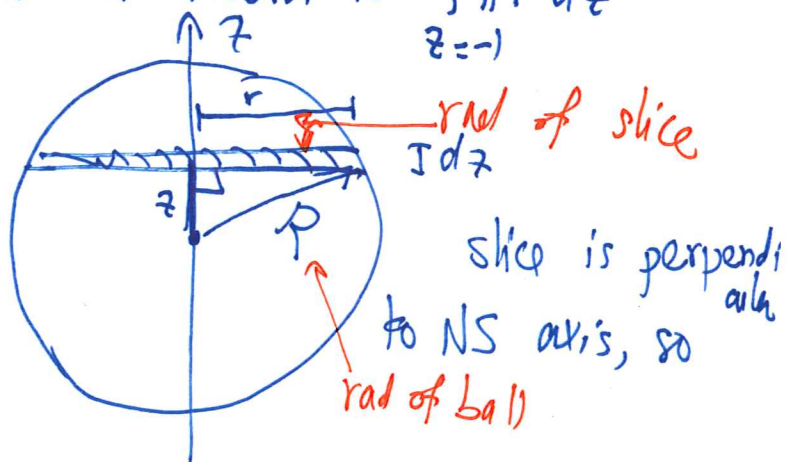 z
z=-1
r
rad of slice
I dz
z
ρ
slice is perpendi
cular
to NS axis, so
rad of ball